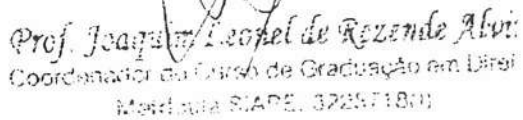 Prof. Joaquim Leonel de Rezende Alvi
Coordenador do Curso de Graduação em Direi
Matrícula SIAPE